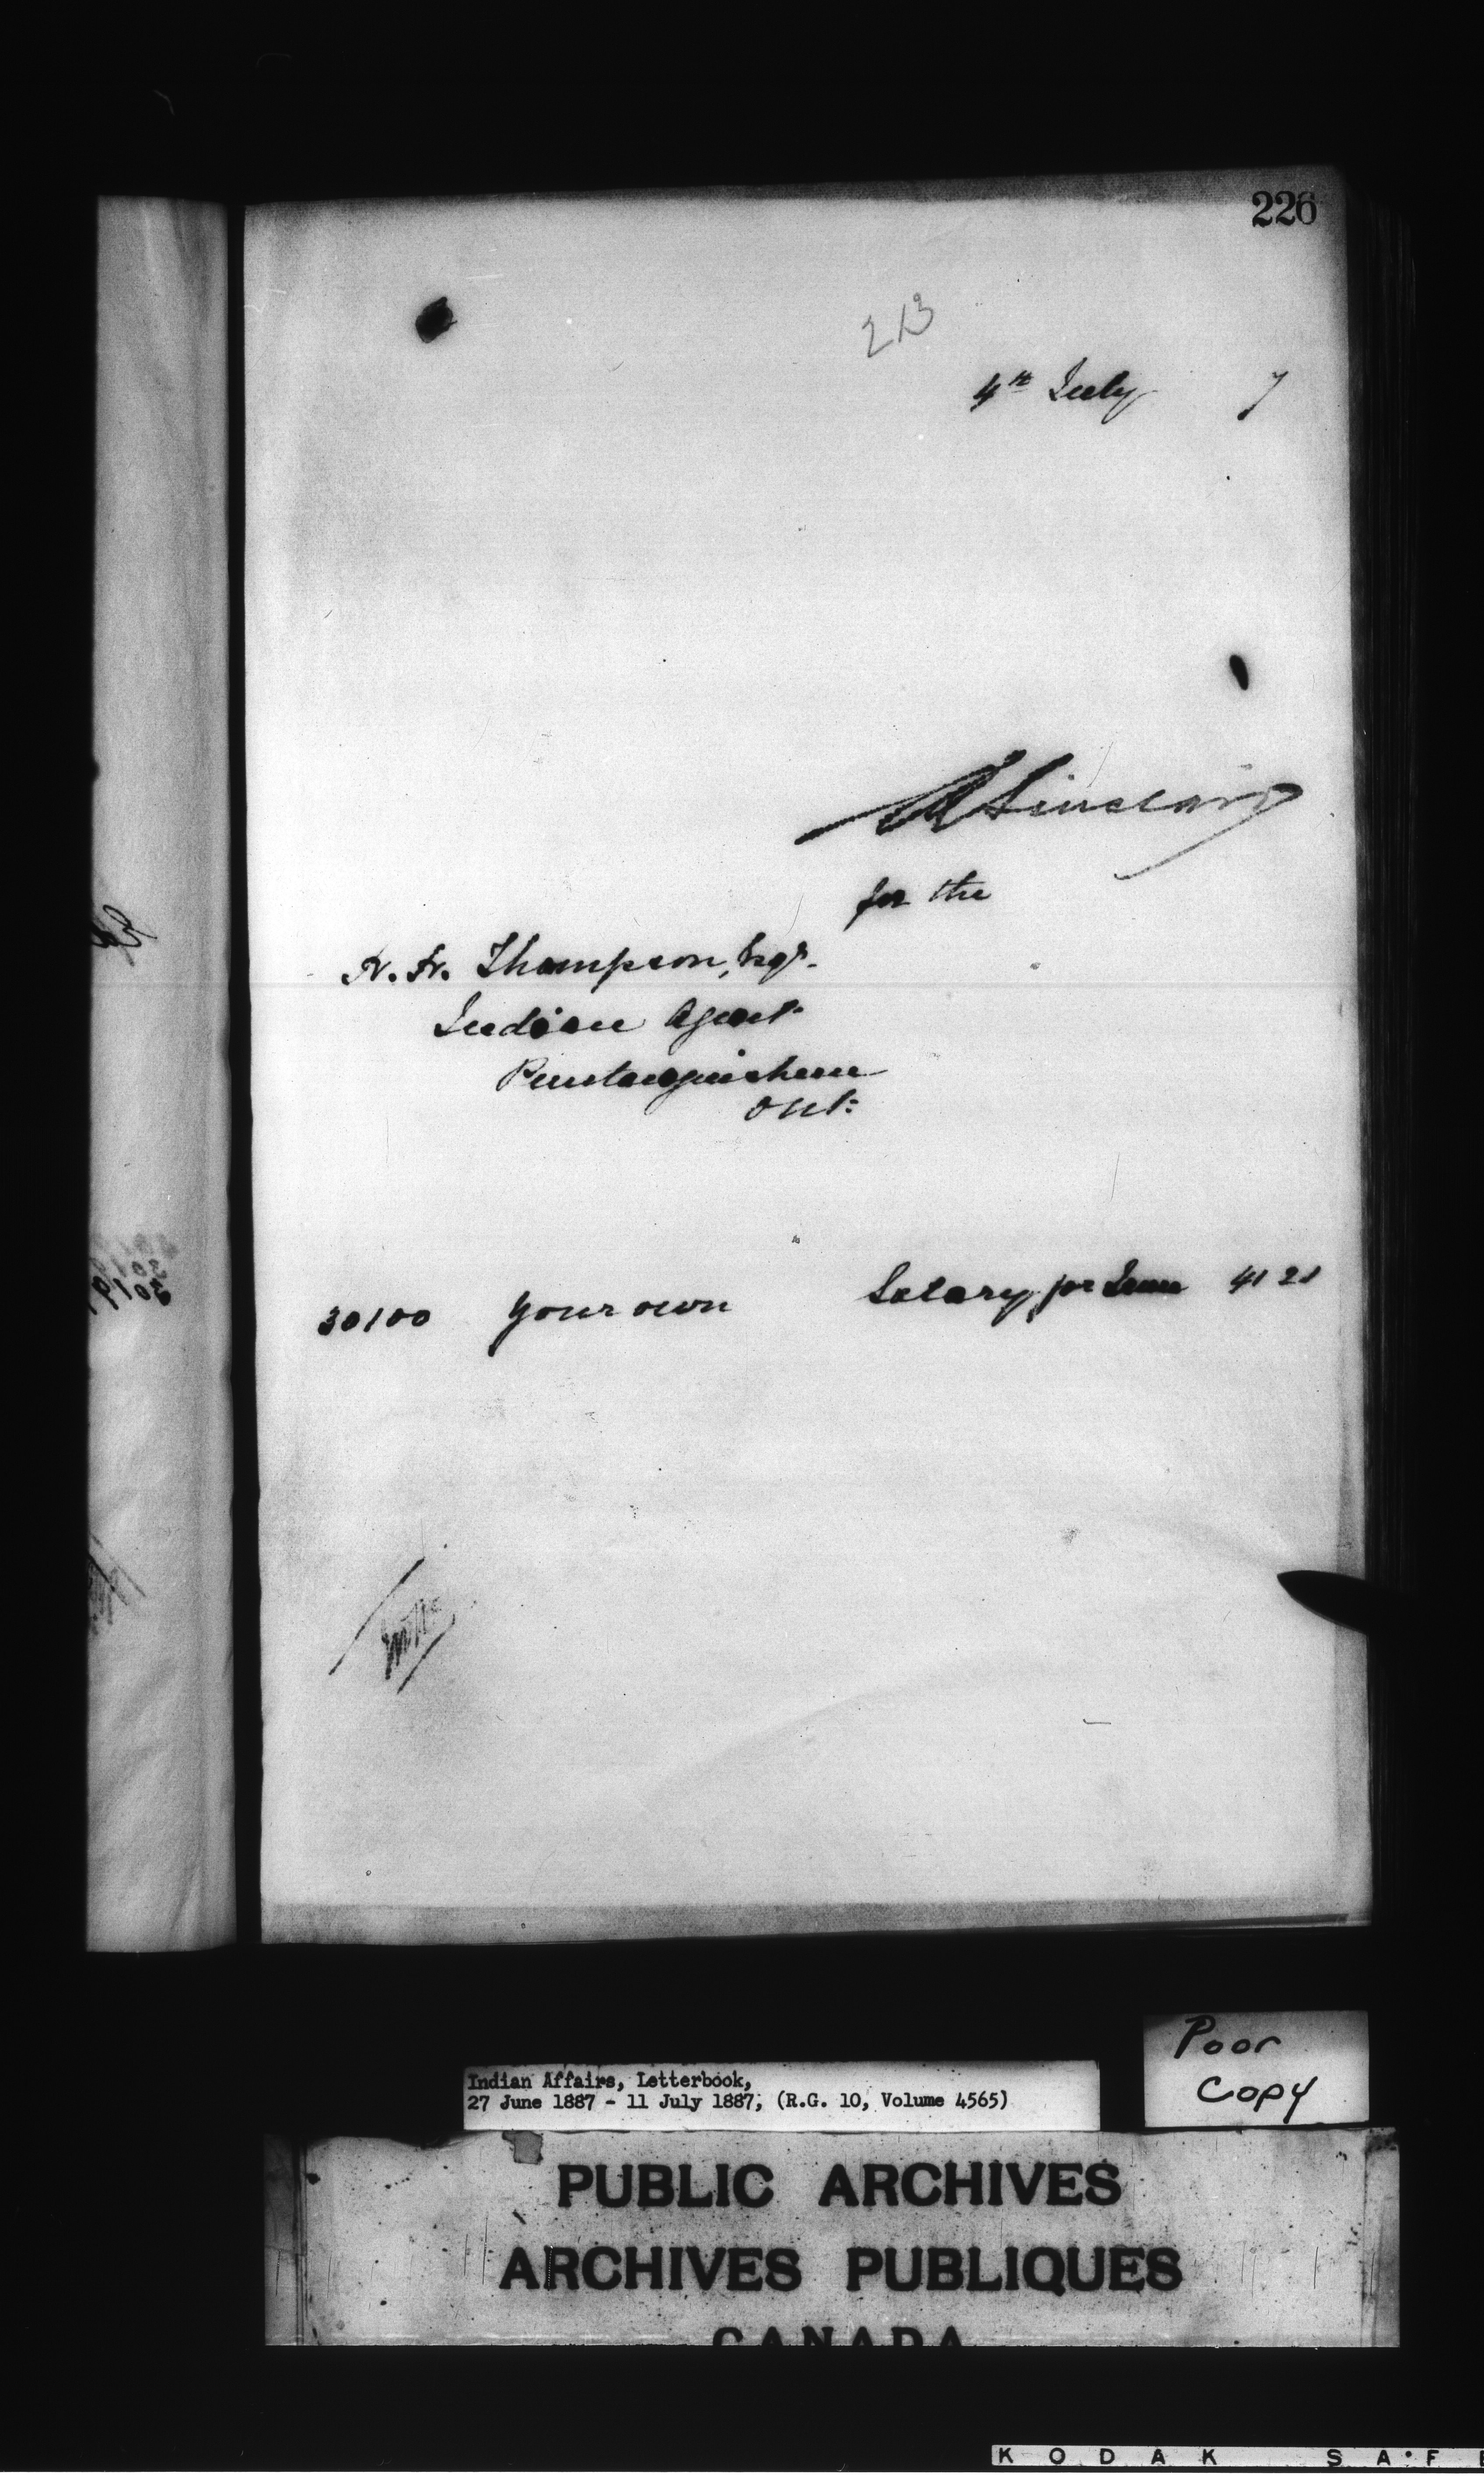 226
213
4th July 7
R Sinclair
for the
H. H. Thompson, Esqr.
Indian Agent
Penetanguishene
Ont:
30100 Your own Salary for June 41 21
Indian Affairs, Letterbook,
27 June 1887 - 11 July 1887, (R.G. 10, Volume 4565)
Poor
Copy
PUBLIC ARCHIVES
ARCHIVES PUBLIQUES
CANADA
KODAK SAFE